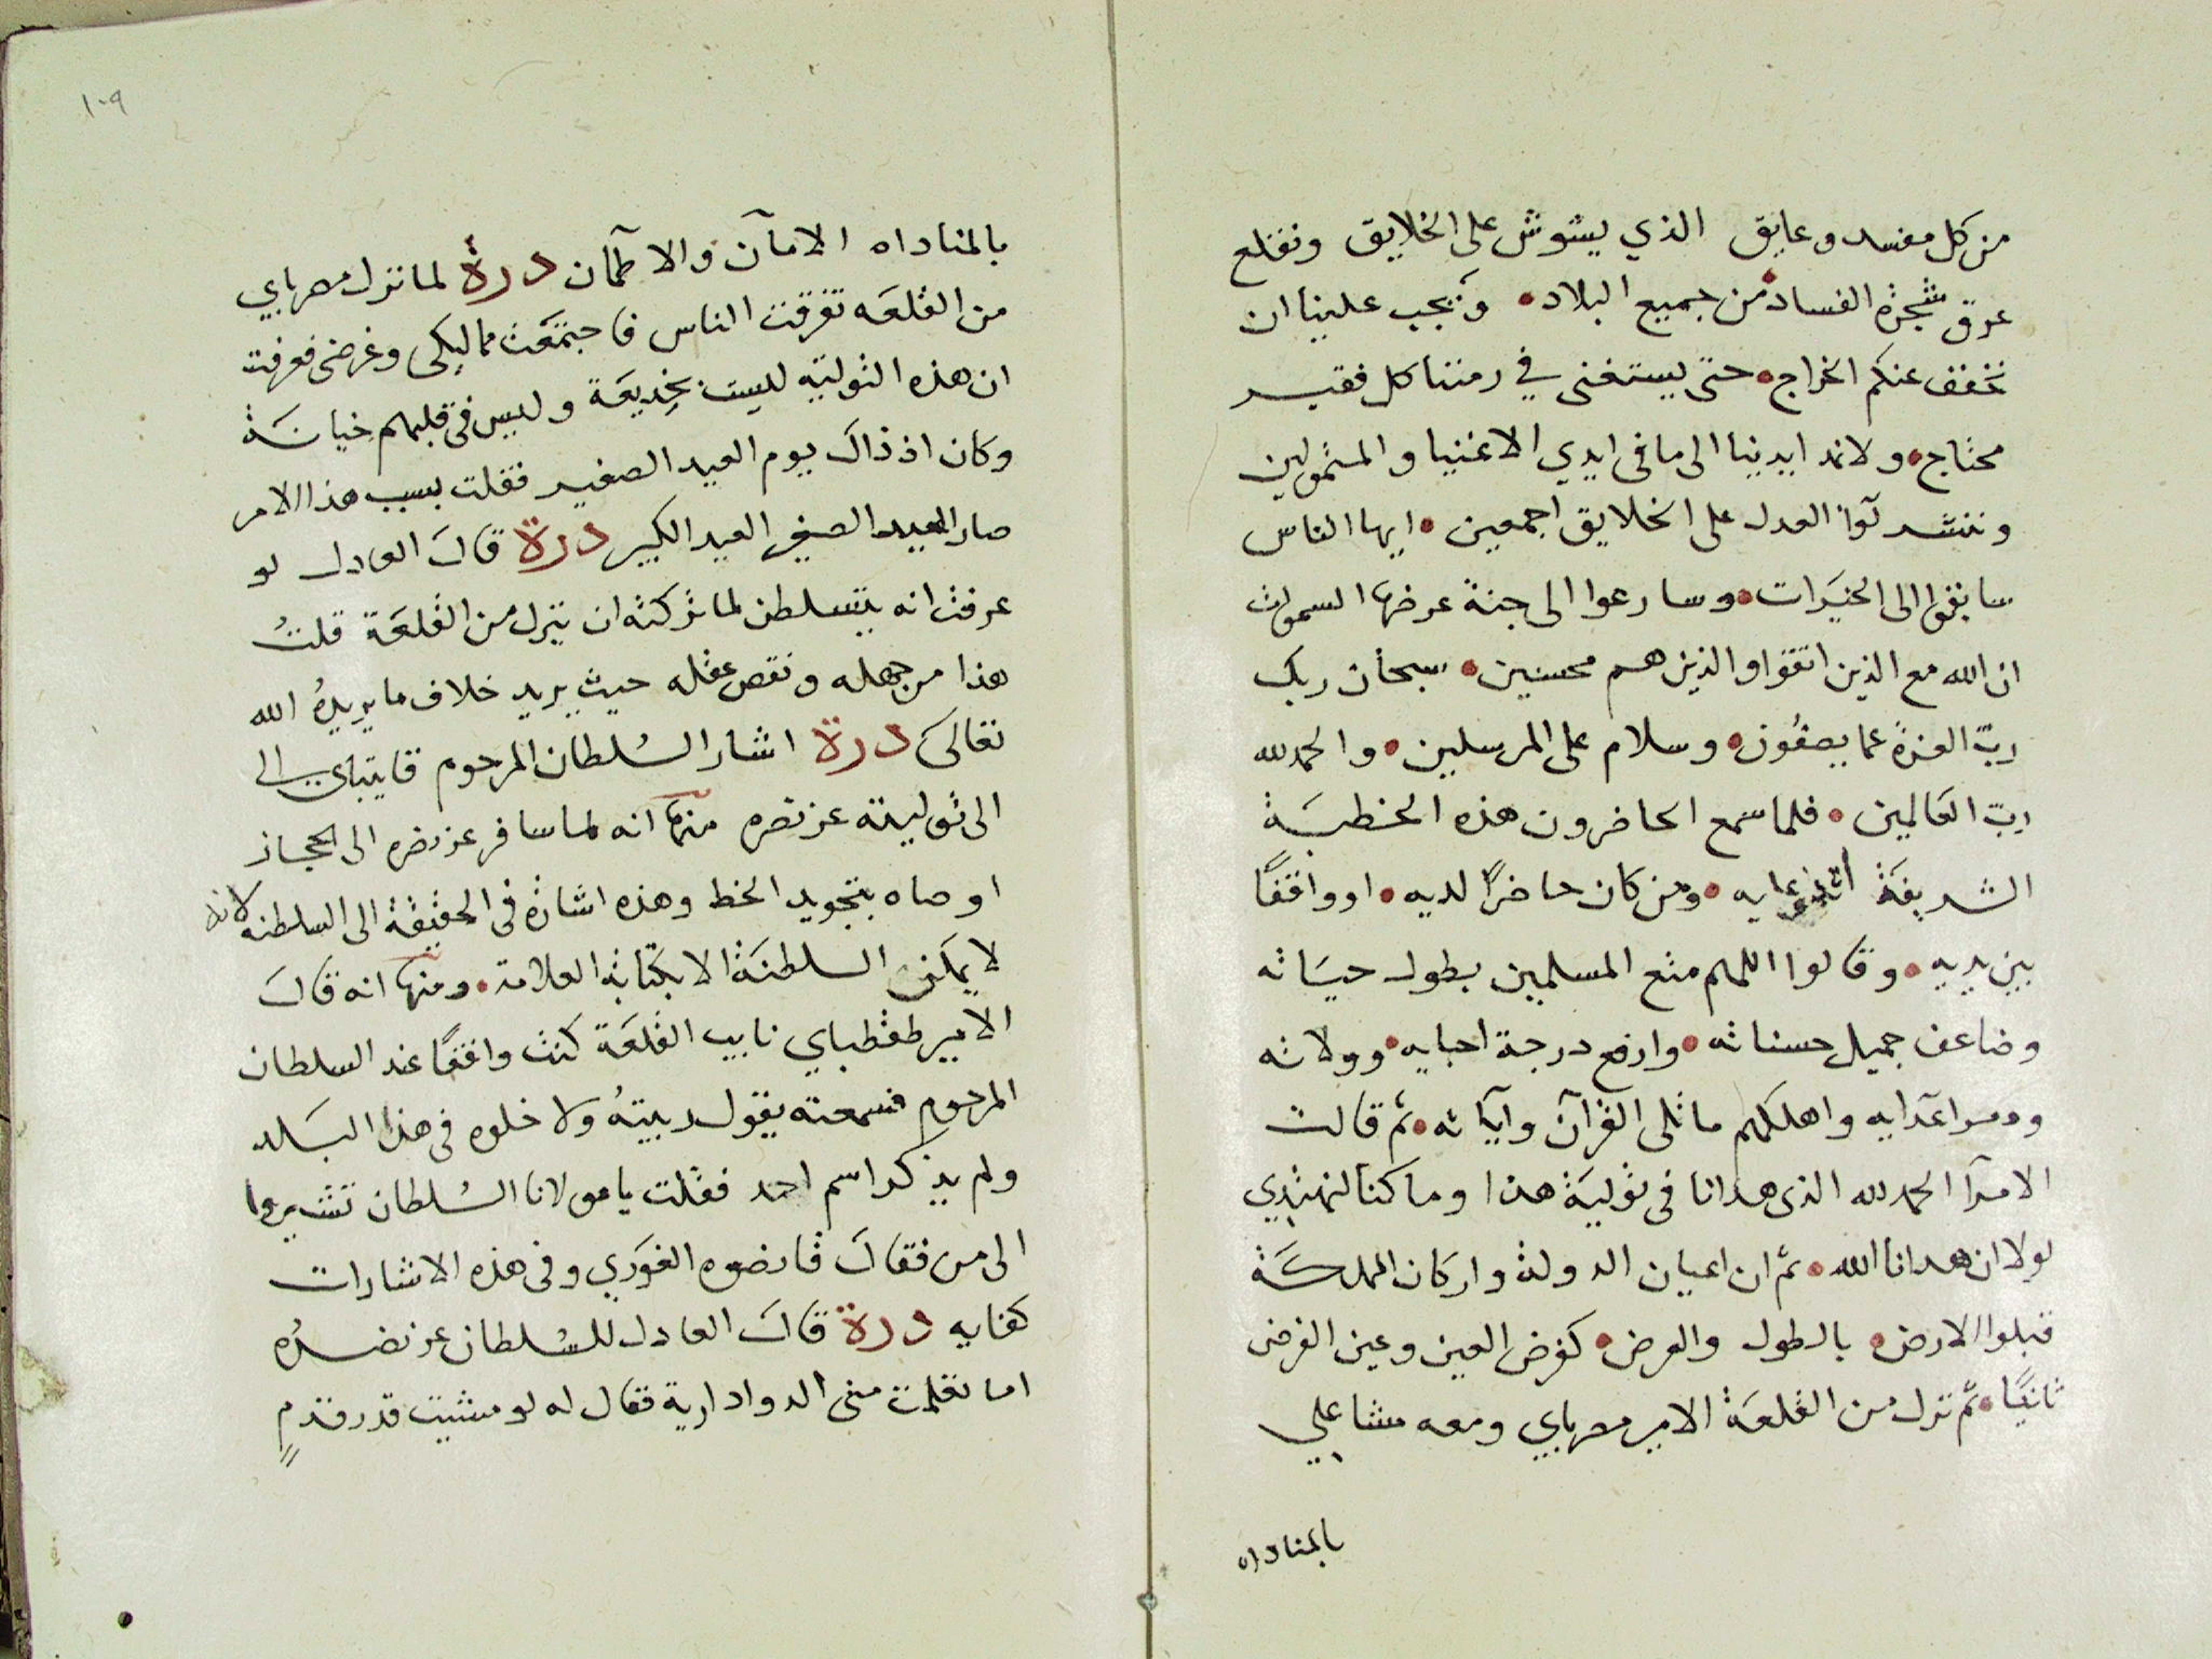 من كل مفسد وعايق الذي يشوش على الخلايق ونقلع
عرق شجرة الفساد من جميع البلاد • ويجب علينا ان
نخفف عنكم الخراج • حتى يستغنى في زمننا كل فقير
محتاج • ولا نمد ايدينا الى ما فى ايدي الاغنيا والمتمولين
وننشر لوآ العدل على الخلايق اجمعين • ايها الناس
سابقوا الى الخيرات • وسارعوا الى جنة عرضها السموات
ان الله مع الذين اتقوا والذين هم محسنين • سبحان ربك
ربّ العزة عما يصفون • وسلام على المرسلين • والحمد لله
ربّ العالمين • فلما سمع الحاضرون هذه الخطبة
الشريفة • ومن كان حاضرًا لديه • او واقفًا
بين يديه • وقالوا اللهم متع المسلمين بطول حياته
وضاعف جميل حسناته • وارفع درجة احبايه • وولاته
ودمر اعدايه واهلكهم ما تلى القرآن وآياته • ثم قالت
الامرآ الحمد لله الذى هدانا فى تولية هذا وما كنا لنهتدي
لولا ان هدانا الله • ثم ان اعيان الدولة واركان المملكة
قبلوا الارض • بالطول والعرض • كفرض العين وعين الفرض
ثانيًا • ثم نزل من القلعة الامير مصرباي ومعه مشاعلي
بالمناداه
١٠٩
بالمناداه الامآن والاطمآن درة لما نزل مصرباي
من القلعه تفرقت الناس فاجتمعت مماليكى وغرضى فعرفت
ان هذه التوليه ليست بخديعة وليس فى قلبهم خيانة
وكان اذ ذاك يوم العيد الصغير فقلت بسبب هذا الامر
صار العيد الصغير العيد الكبير درة قال العادل لو
عرفت انه يتسلطن لما تركته ان ينزل من القلعة قلت
هذا من جهله ونقص عقله حيث يريد خلاف ما يريده الله
تعالى درة اشار السلطان المرحوم قايتباي الى
الى توليته عز نصره منها انه لما سافر عز نصره الى الحجاز
اوصاه بتجويد الخط وهذه اشارة فى الحقيقة الى السلطنه لانه
لا يمكن السلطنة الا بكتابة العلامة • ومنها انه قال
الامير طقطباي نايب القلعة كنت واقفًا عند السلطان
المرحوم فسمعته يقول ربيته ولا خلوه فى هذا البلد
ولم يذكر اسم احد فقلت يا مولانا السلطان تشيروا
الى من فقال قانصوه الغوري وفى هذه الاشارات
كفايه درة قال العادل للسلطان عز نصره
اما تعلمت منى الدوادارية فقال له لو مشيت قدر قدمٍ